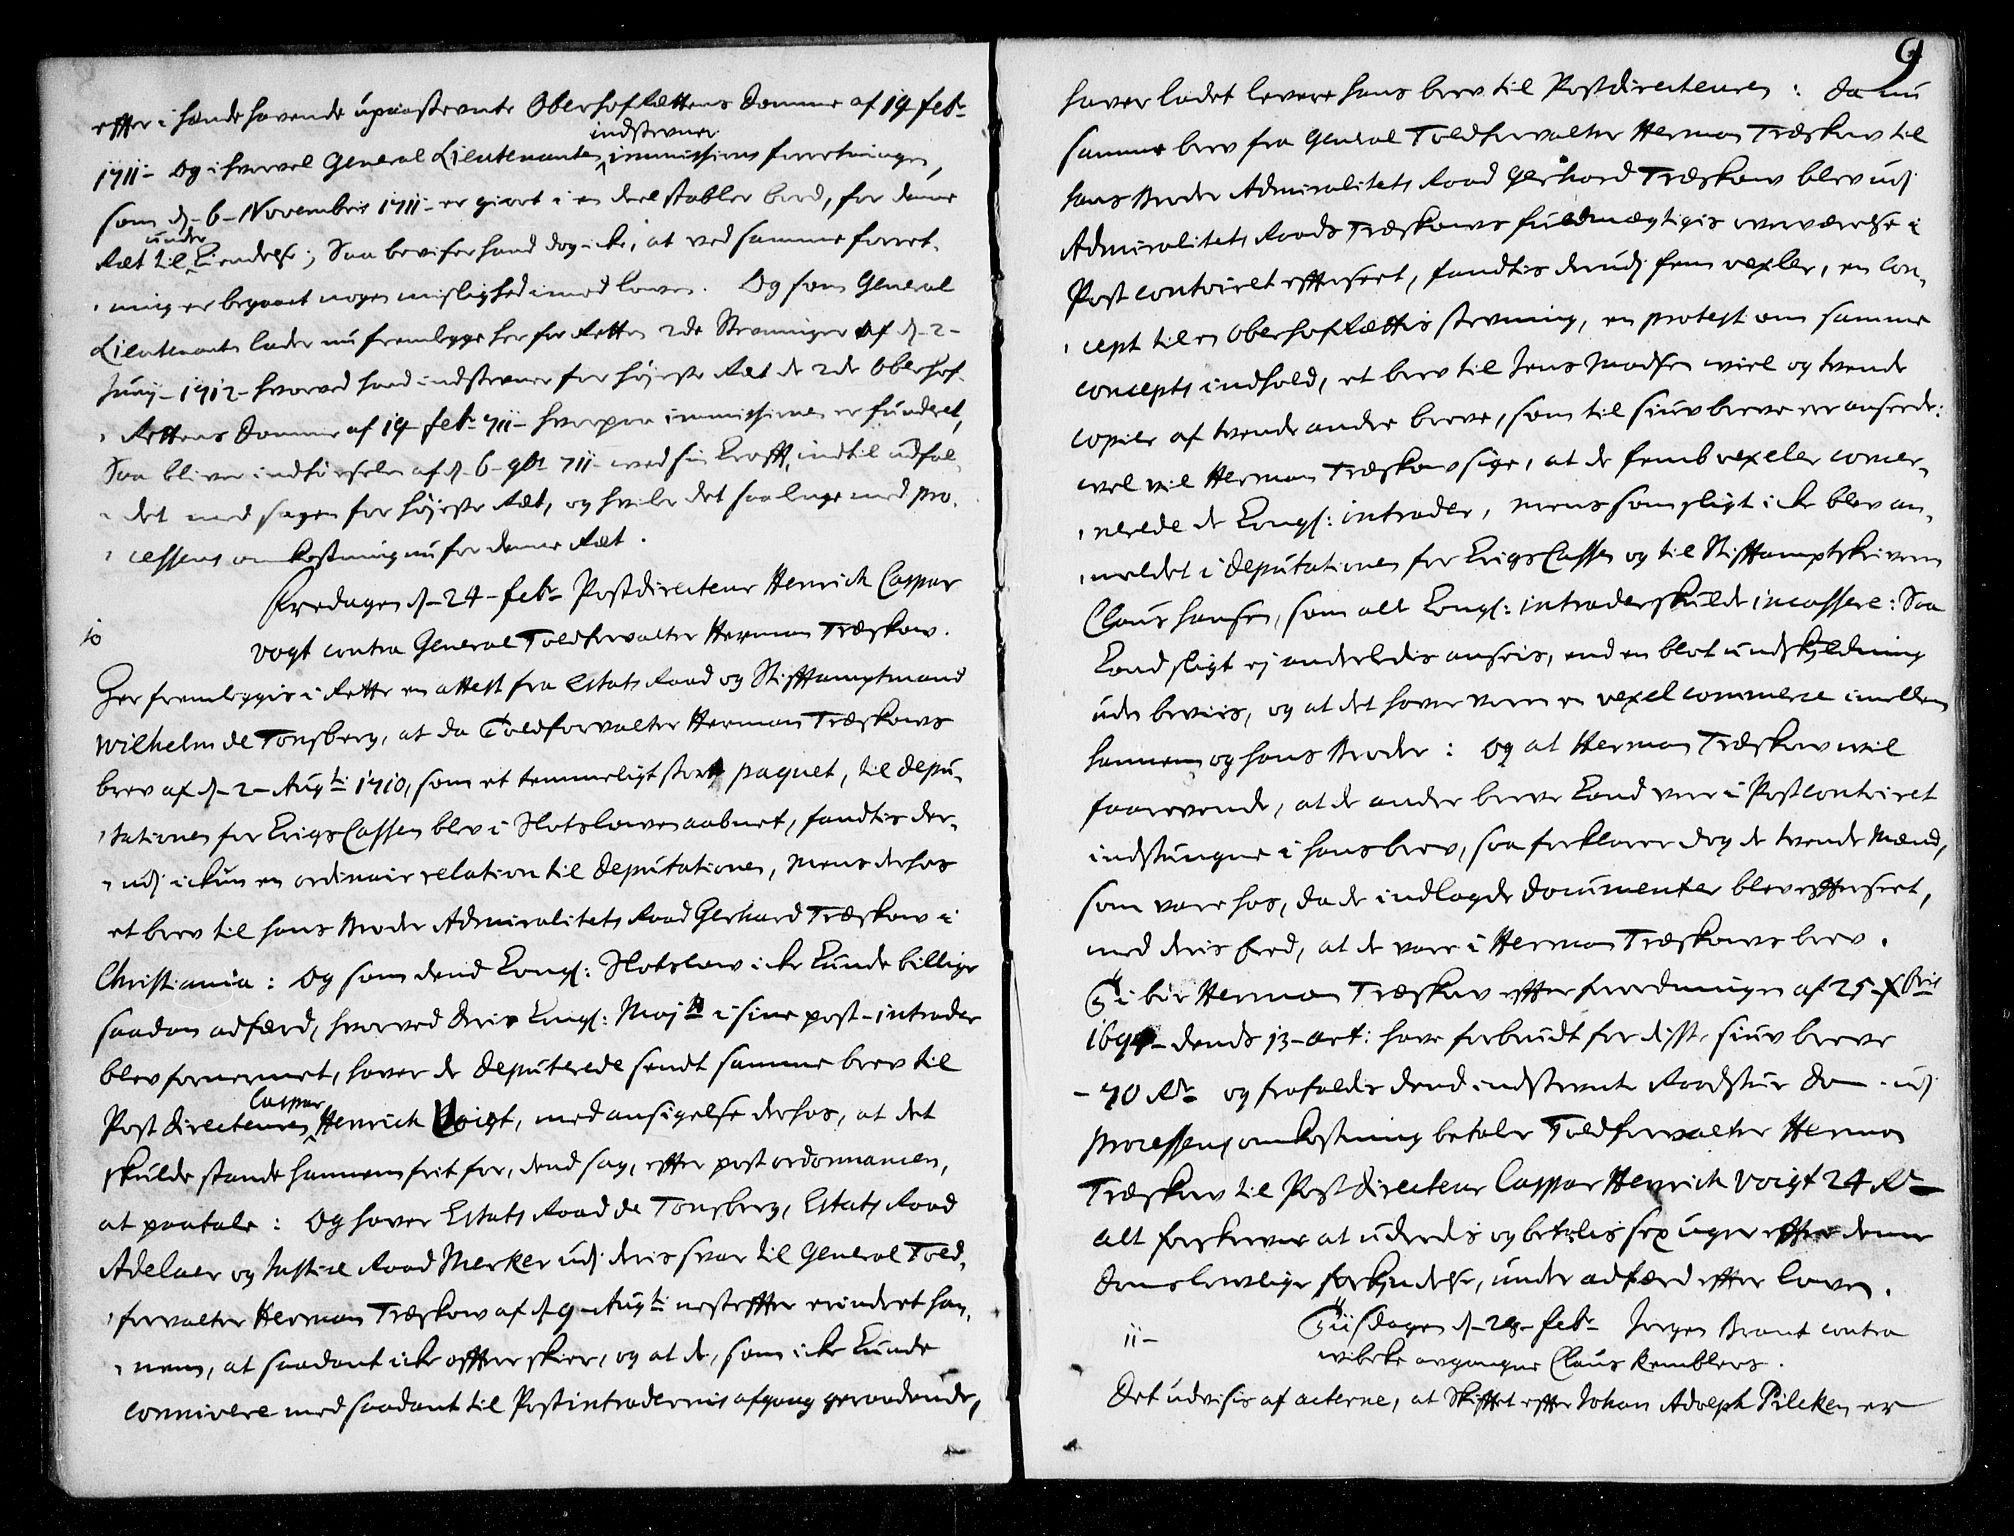 effter i hænde havende upaastevnte Oberhof Rættens Domme af 19 febr:
1711- Og ihvorvel General Lieutenanten indstevner immissions forretningen,
som d- 6- Novembris 1711- er giort i en deel stabler bord, for denne
Ræt til under kiendelse; Saa beviser hand dog icke, at ved samme forret-
ning er begaaet nogen mislighed imod lowen. Og som General
Lieutenanten lader nu fremlegge her for Retten 2de Stevninger af d- 2-
Junij- 1712- hvorved hand indstevner for høyeste Ræt de 2de Oberhof-
Rettens Domme af 19- febr: 711- hvorpaa immissionen er funderet,
Saa bliver indførselen af d- 6- 9br: 711- ved sin Krafft, indtil udfal-
det med sagen for høyeste Ræt, og hviler det saa lenge med pro-
cessens omkostning nu for denne Ræt.
Fredagen d- 24- febr: Postdirecteur Henrich Caspar
10
Vogt contra General Toldforvalter Herman Træskow.
Her fremleggis i Rette en attest fra Estats Raad og Stifftamptmand
Wilhelm de Tonsberg, at da Toldforvalter Herman Træskows
brev af d- 2- Aug:ti 1710, som et temmeligt stort paquet, til depu-
tationen for Krigs Cassen blev i Slotslowen aabnet, fandtis der-
udj ickun en ordinair relation til deputationen, mens derhos
et brev til hans broder Admiralitets Raad Gerhard Træskow i
Christiania: Og som dend Kongl: Slotslow icke kunde billige
saadan adfærd, hvorved deris Kongl: Maj:ts i sine post-intrader
blev fornermet, haver de deputerede sendt samme brev til
Postdirecteuren Caspar Henrich Voigt, med ansigelse derhos, at det
skulde stande hannem frit for, dend sag, effter postordonnancen,
at paatale: Og haver Estats Raad de Tonsberg, Estats Raad
Adelaer og Justice Raad Merker udj deris svar til General Told-
forvalter Herman Træskow af d- 9- Aug:ti nesteffter erindret han-
nem, at saadant icke offtere skeer, og at de, som icke kunde
connivere med saadant til Postintradernis afgang geraadende,
9
haver ladet levere hans brev til Postdirecteuren: Da nu
samme brev fra General Toldforvalter Herman Træskow til
hans broder Admiralitets Raad Gerhard Træskow blev udj
Admiralitets Raads Træskows fuldmægtigis overværelse i
Postcontoiret effterseet, fandtis derudj fem vexler, en con-
cept til en Oberhof Rættis stevning, en protest om samme
concepts indhold, et brev til Jens Madsen Wiel og tvende
copier af tvende andre breve, som til siuv breve ere anseede:
vel vil Herman Træskow sige, at de femb vexeler concer-
nerede de Kongl: intrader, mens som sligt icke blev an-
meldet i deputationen for Krigs Cassen og til Stifftamptskriveren
Claus Hansen, som alt Kongl: intrader skulde incassere: Saa
kand sligt ej anderledis ansees, end en blot undskyldning
uden beviis, og at det haver veret en vexel commerce imellem
hannem og hans broder: Og at Herman Træskow vil
foarevende, at de andre breve kand vere i Postcontoiret
indstungne i hans brev, saa forklarer dog de tvende Mænd,
som vare hos, da de indlagde documenter blev effterseet,
med deris Eed, at de vare i Herman Træskows brev.
Thi bør Herman Træskow effter forordningen af 25- Xbris
1694- dends 13- art: have forbrudt for disse siuv breve
- 70 Rdr: og frafalder dend indstevnte Raadstue Dom. udj
Processens omkostning betaler Toldforvalter Herman
Træskow til Postdirecteur Caspar Henrich Voigt 24 Rdr:
alt forskrevne at uderedis og betalis sex uger effter denne
doms lowlige forkyndelse, under adfærd effter lowen.
11- Tiisdagen d- 28- febr: Jørgen Brant contra
wibeke afgangne Claus Remblers.
Det udvisis af acterne, at Skifftet effter Johan Adolph Pilcken er